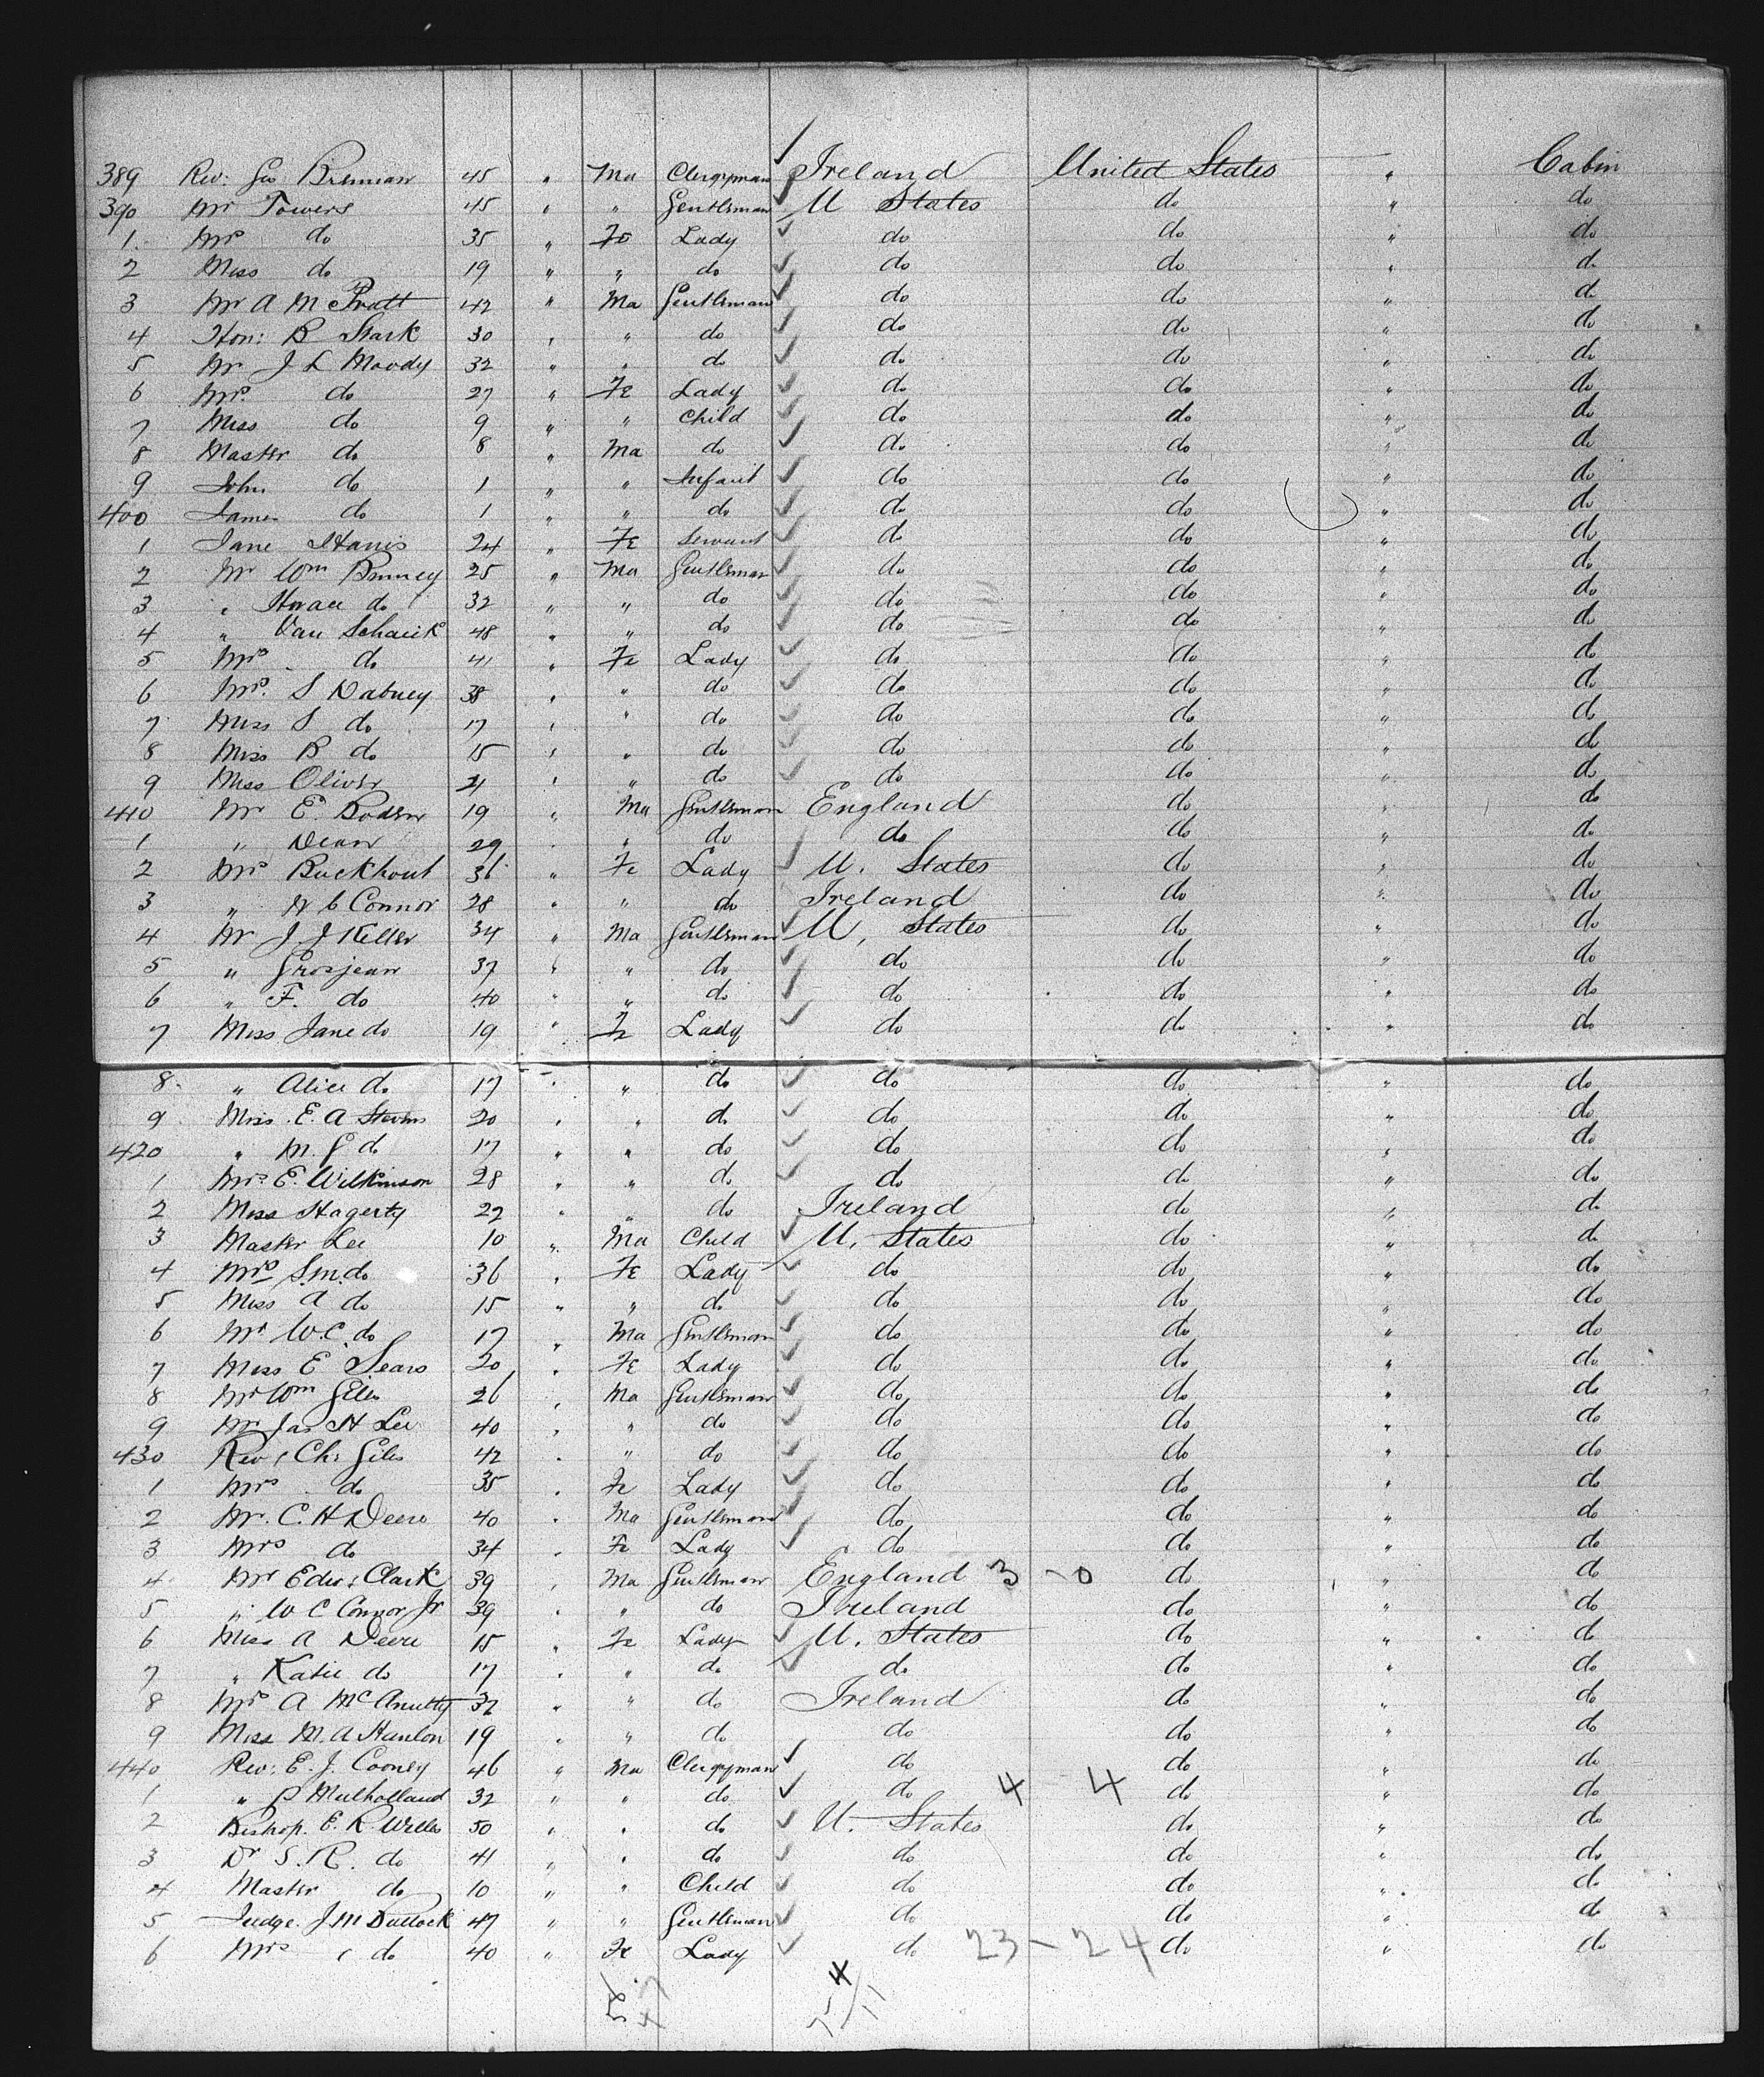 389 Rev: Geo Brennan 45 " Ma Clergyman Ireland United States " Cabin
390 Mr Towers 45 " " Gentleman U States do " do
1 Mrs do 35 " Fe Lady do do " do
2 Miss do 19 " " do do do " do
3 Mr A M Pratt 42 " Ma Gentleman do do " do
4 Hon: B Stark 30 " " do do do " do
5 Mr J L Moody 32 " " do do do " do
6 Mrs do 27 " Fe Lady do do " do
7 Miss do 9 " " Child do do " do
8 Master do 8 " Ma do do do " do
9 John do 1 " " Infant do do " do
400 James do 1 " " do do do " do
1 Jane Harris 24 " Fe Servant do do " do
2 Mr Wm Binney 25 " Ma Gentleman do do " do
3 " Horace do 32 " " do do do " do
4 " Van Schaick 48 " " do do do " do
5 Mrs do 41 " Fe Lady do do " do
6 Mrs. S Dabney 38 " " do do do " do
7 Miss S do 17 " " do do do " do
8 Miss B do 15 " " do do do " do
9 Miss Oliver 21 " " do do do " do
410 Mr E. Boden 19 " Ma Gentleman England do " do
1 " Dean 29 " " do do do " do
2 Mrs Buckhout 36 " Fe Lady U. States do " do
3 " W C Connor 28 " " do Ireland do " do
4 Mr J. J Keller 34 " Ma Gentleman U, States do " do
5 " Grosjean 37 " " do do do " do
6 " F. do 40 " " do do do " do
7 Miss Jane do 19 " Fe Lady do do " do
8 " Alice do 17 " " do do do " do
9 Miss E. A Stevens 20 " " do do do " do
420 " M. G do 17 " " do do do " do
1 Mrs. E. Wilkinson 28 " " do do do " do
2 Miss Hagerty 22 " " do Ireland do " do
3 Master Lee 10 " Ma Child U. States do " do
4 Mrs S.M. do 36 " Fe Lady do do " do
5 Miss A do 15 " " do do do " do
6 Mr W.C. do 17 " Ma Gentleman do do " do
7 Miss E Sears 20 " Fe Lady do do " do
8 Mr Wm Giles 26 " Ma Gentleman do do " do
9 Mr Jas H Lee 40 " " do do do " do
430 Rev: Chs Giles 42 " " do do do " do
1 Mrs do 35 " Fe Lady do do " do
2 Mr. C. H Deere 40 " Ma Gentleman do do " do
3 Mrs do 34 " Fe Lady do do " do
4 Mr Edw: Clark 39 " Ma Gentleman England 3 - 0 do " do
5 " W C Connor Jr 39 " " do Ireland do " do
6 Miss A Deere 15 " Fe Lady U. States do " do
7 " Katie do 17 " " do do do " do
8 Mrs A McAnutty 32 " " do Ireland do " do
9 Miss M. A Hanlon 19 " " do do do " do
440 Rev: E. J. Cooney 46 " Ma Clergyman do do " do
1 " P Mulholland 32 " " do do 4 - 4 do " do
2 Bishop. E. R. Welles 50 " " do U. States do " do
3 Dr S. R. do 41 " " do do do " do
4 Master do 10 " " Child do do " do
5 Judge. J. M Bullock 47 " " Gentleman do do " do
6 Mrs " do 40 " Fe Lady do 23 - 24 do " do